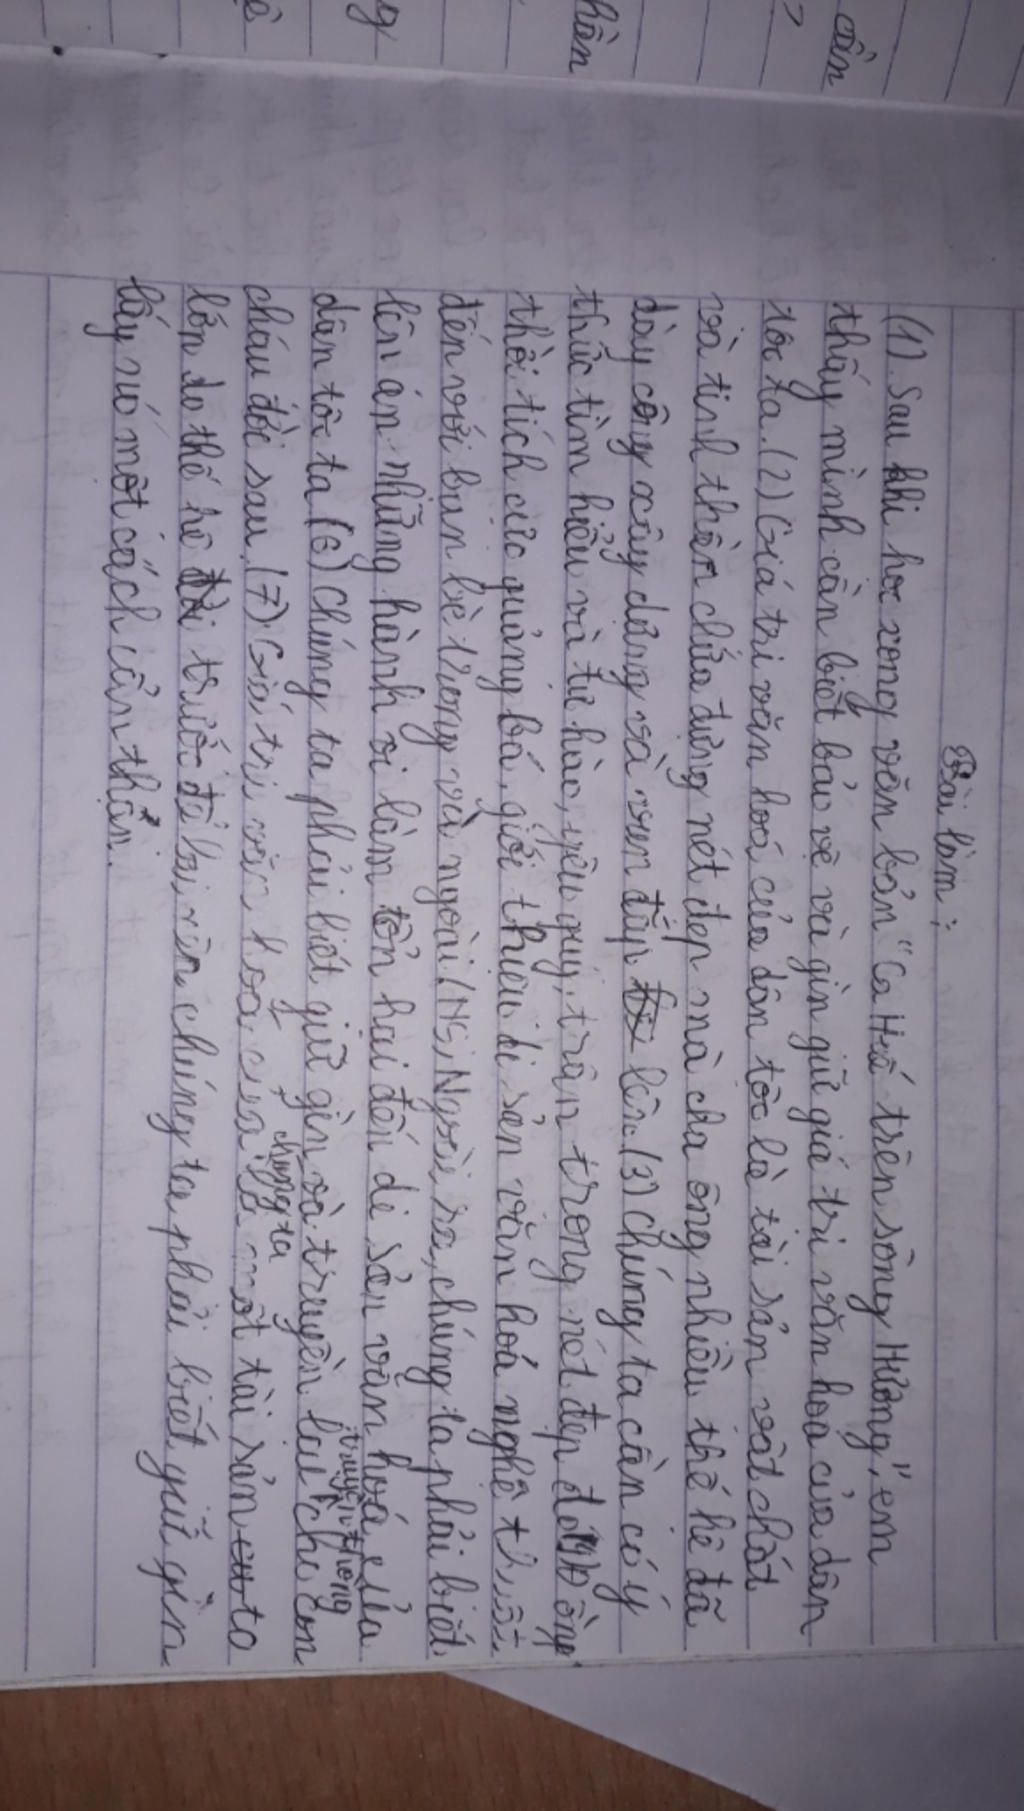 Bài làm:
(1). Sau khi học xong văn bản "Ca Huế trên sông Hương", em
thấy mình cần biết bảo vệ và gìn giữ giá trị văn hoá của dân
tộc ta. (2) Giá trị văn hoá của dân tộc là tài sản vật chất
và tinh thần chứa đựng nét đẹp mà cha ông nhiều thế hệ đã
dày công xây dựng và vun đắp lên. (3) Chúng ta cần có ý
thức tìm hiểu và tự hào, yêu quý, trân trọng nét đẹp đó. Đồng
thời tích cực quảng bá, giới thiệu di sản văn hoá nghệ thuật
đến với bạn bè trong và ngoài. (N5) Ngoài ra, chúng ta phải biết
lên án những hành vi làm tổn hại đến di sản văn hoá của
dân tộc ta (6) Chúng ta phải biết giữ gìn và truyền lại truyền thống cho con
cháu đời sau. (7) Giá trị văn hoá của chúng ta là một tài sản to
lớn do thế hệ trước để lại, nên chúng ta phải biết giữ gìn
lấy nó một cách cẩn thận.
cần
hần